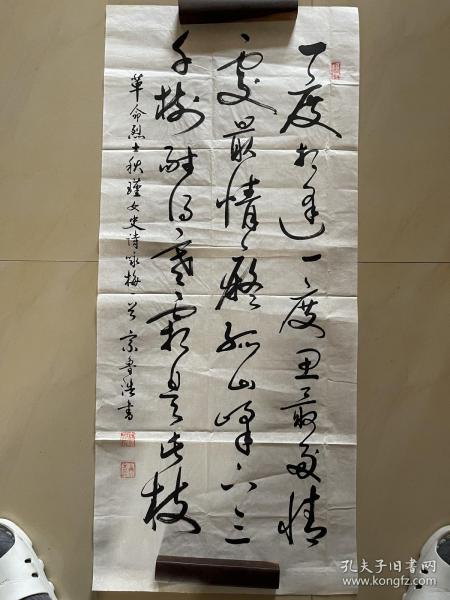 一度相逢一度思最多情
处最情痴孤山林下三
千树耐得寒霜是此枝
革命烈士秋瑾女史诗咏梅 宗鲁浩书
孔夫子旧书网
www.kongfz.com